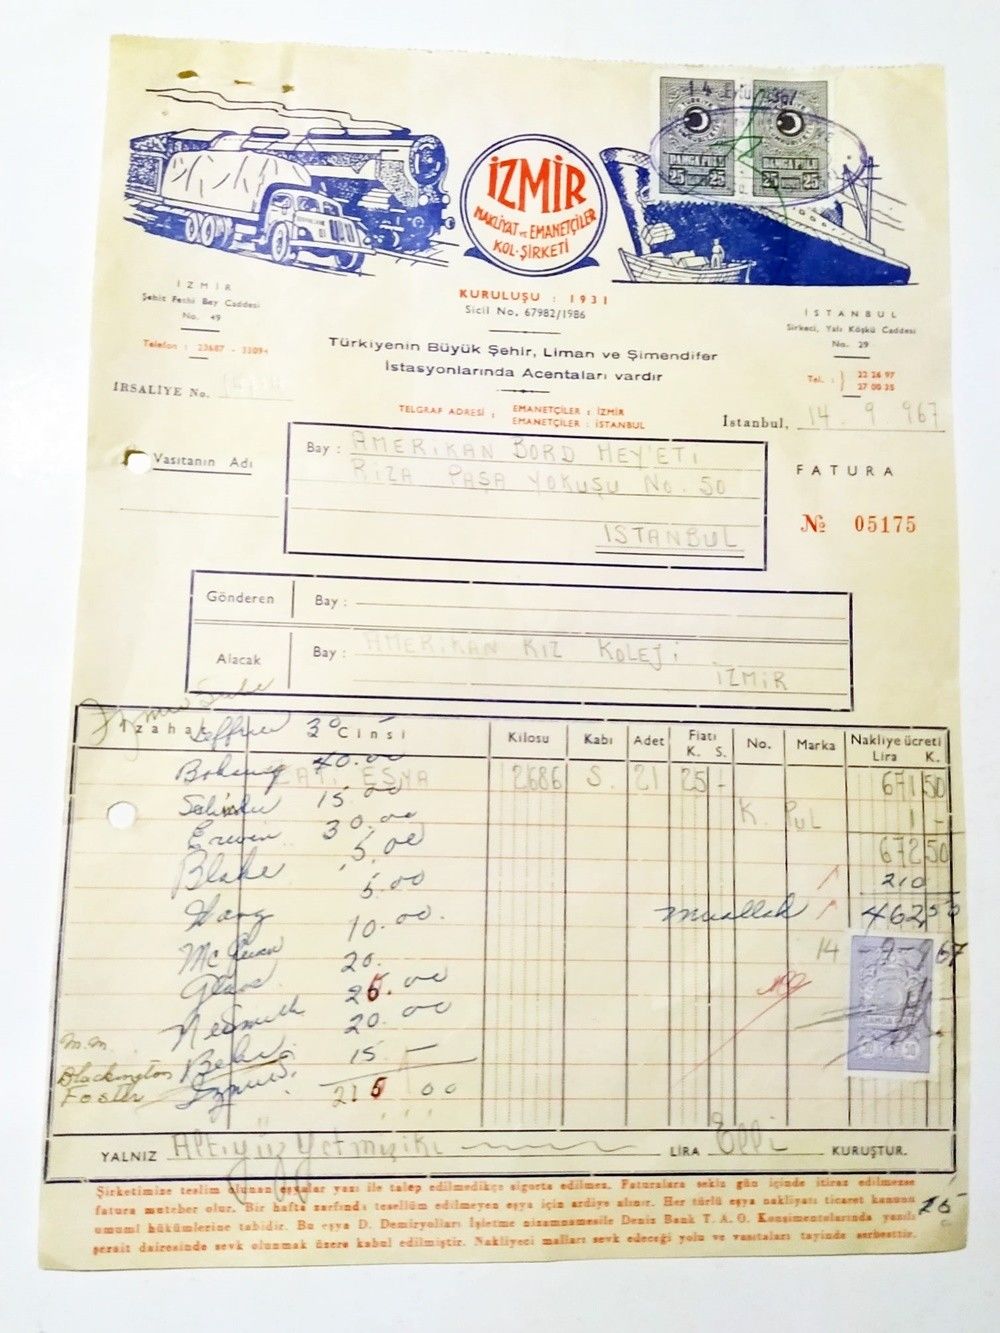 14 Eylül 1967
DAMGA PULU DAMGA PULU
25 25 25 25
İZMİR
NAKLİYAT ve EMANETÇİLER
KOL. ŞİRKETİ
KURULUŞU : 1931
Sicil No, 67982/1986
İZMİR
Şehit Fethi Bey Caddesi
No. 49
Telefon : 23687 - 33094
Türkiyenin Büyük Şehir, Liman ve Şimendifer
İstasyonlarında Acentaları vardır
İSTANBUL
Sirkeci, Yalı Köşkü Caddesi
No. 29
Tel. : 22 26 97
27 00 35
İRSALİYE No.
TELGRAF ADRESİ : EMANETÇİLER : İZMİR
EMANETÇİLER : İSTANBUL
İstanbul, 14 . 9 . 967
Vasıtanın Adı
Bay : AMERİKAN BORD HEY'ETİ
RIZA PAŞA YOKUŞU No. 50
İSTANBUL
FATURA
№ 05175
Gönderen Bay :
Alacak Bay : AMERİKAN KIZ KOLEJİ
İZMİR
İzahat Cinsi Kilosu Kabı Adet Fiatı K. S. No. Marka Nakliye ücreti Lira K.
30
40.00
ZATİ EŞYA 2686 S. 21 25 - 671 50
15.00
K. PUL 1 -
Erwin 30.00
672 50
5.00
Blake 5.00
210
10.00.
Muallak 462 50
20.
14 -9-967
25.00
20.00
M.M.
15 -
Blackington
Foster
215 00
DAMGA PULU
50 50
YALNIZ Altıyüzyetmişiki LİRA Elli KURUŞTUR.
Şirketimize teslim olunan eşyalar yazı ile talep edilmedikçe sigorta edilmez. Faturalara sekiz gün içinde itiraz edilmezse
fatura muteber olur. Bir hafta zarfında tesellüm edilmeyen eşya için ardiye alınır. Her türlü eşya nakliyatı ticaret kanunu
umumî hükümlerine tabidir. Bu eşya D. Demiryolları İşletme nizamnamesile Deniz Bank T. A. O. Konşimentolarında yazılı
şerait dairesinde sevk olunmak üzere kabul edilmiştir. Nakliyeci malları sevk edeceği yolu ve vasıtaları tayinde serbesttir.